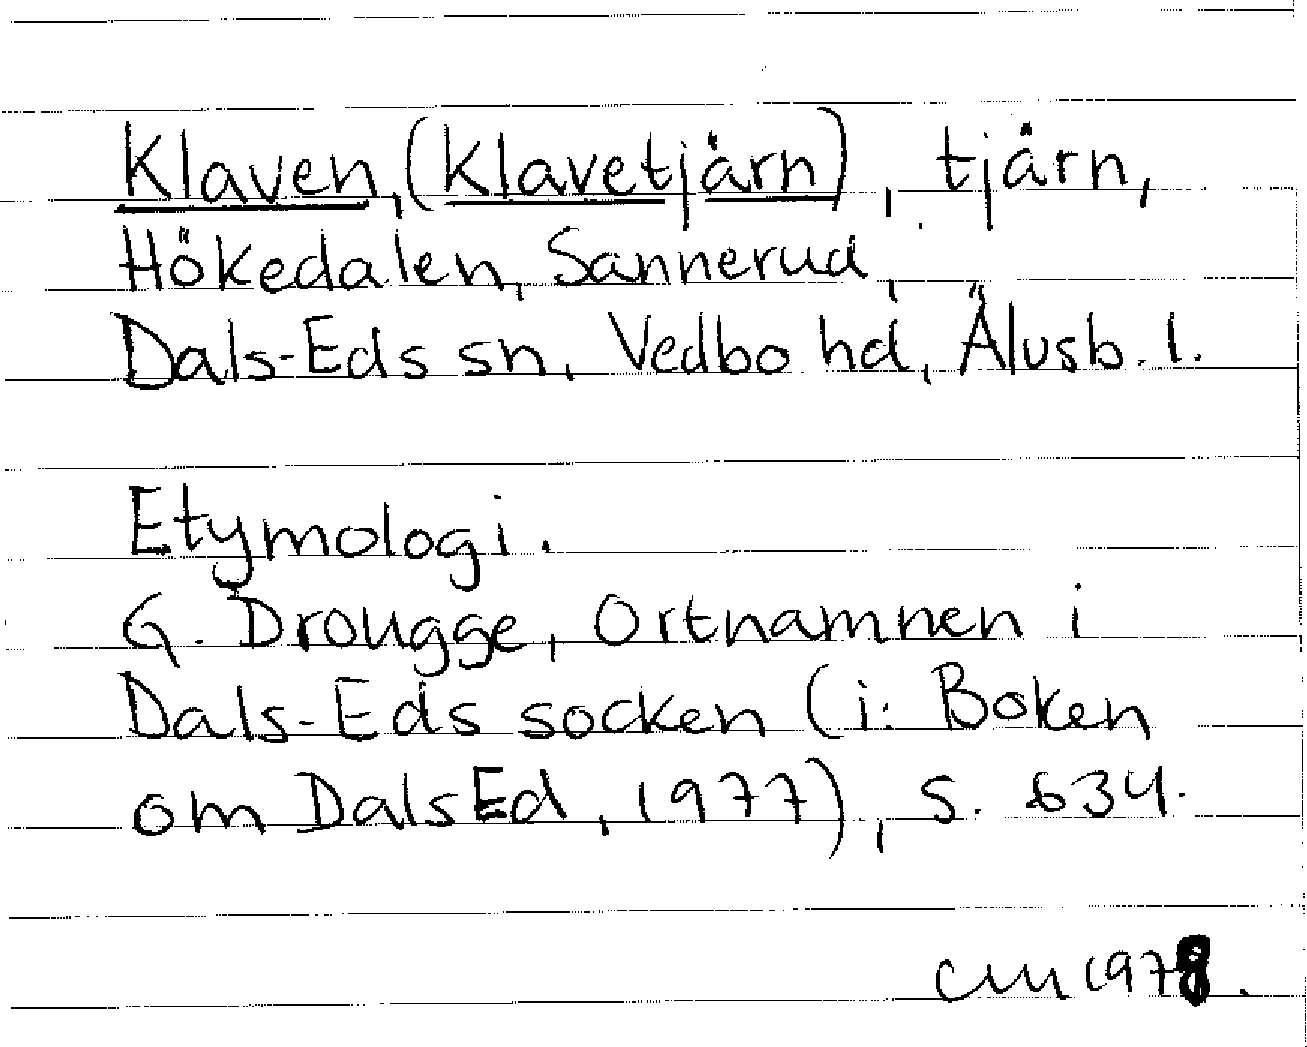 Klaven, (Klavetjärn), tjärn,
Hökedalen, Sannerud,
Dals-Eds sn, Vedbo hd, Älvsb. l.
Etymologi.
G. Drougge, Ortnamnen i
Dals-Eds socken (i: Boken
om Dals Ed, 1977), s. 634.
CM 1978.